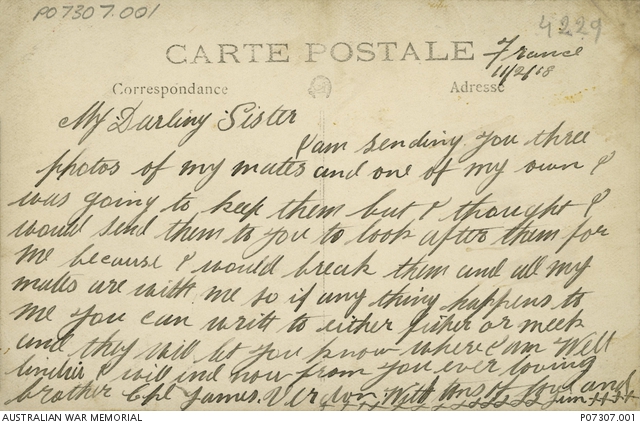 P07307.001
4229
CARTE POSTALE
France
11/2/18
Correspondance
Adresse
My Darling Sister
I am sending you three
photos of my mates and one of my own I
was going to keep them but I thought I
would send them to you to look after them for
me because I would break them and all my
mates are with me so if any thing happens to
me you can writt to either fisher or meek
and they will let you know where I am Well
I will end now from you ever loving
brother Cpl James. Verdon With
Jim
AUSTRALIAN WAR MEMORIAL
P07307.001